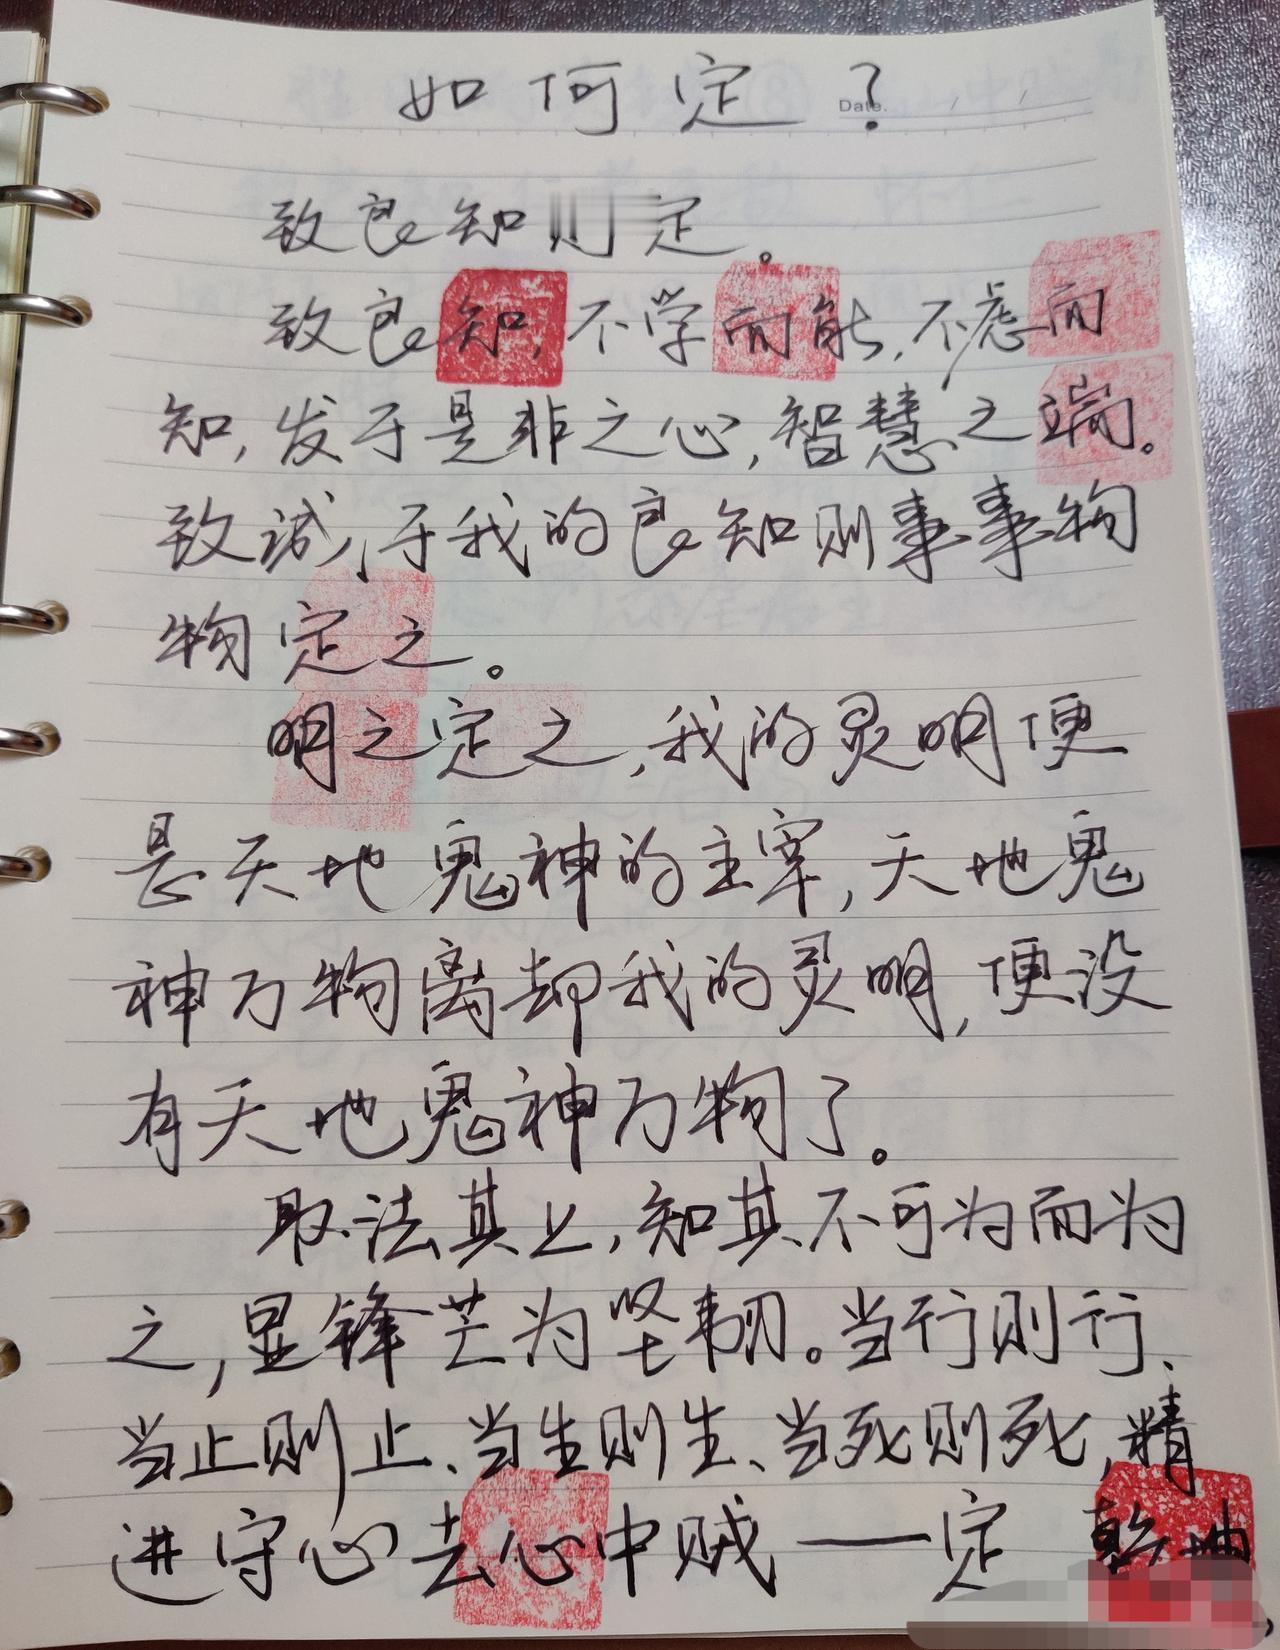 如何定？
Date.
致良知则定。
致良知，不学而能，不虑而
知，发于是非之心，智慧之端。
致诚于我的良知则事事物
物定之。
明之定之，我的灵明便
是天地鬼神的主宰，天地鬼
神万物离却我的灵明，便没
有天地鬼神万物了。
取法其上，知其不可为而为
之，显锋芒为坚韧。当行则行、
当止则止、当生则生、当死则死，精
进守心去心中贼——定 乾坤